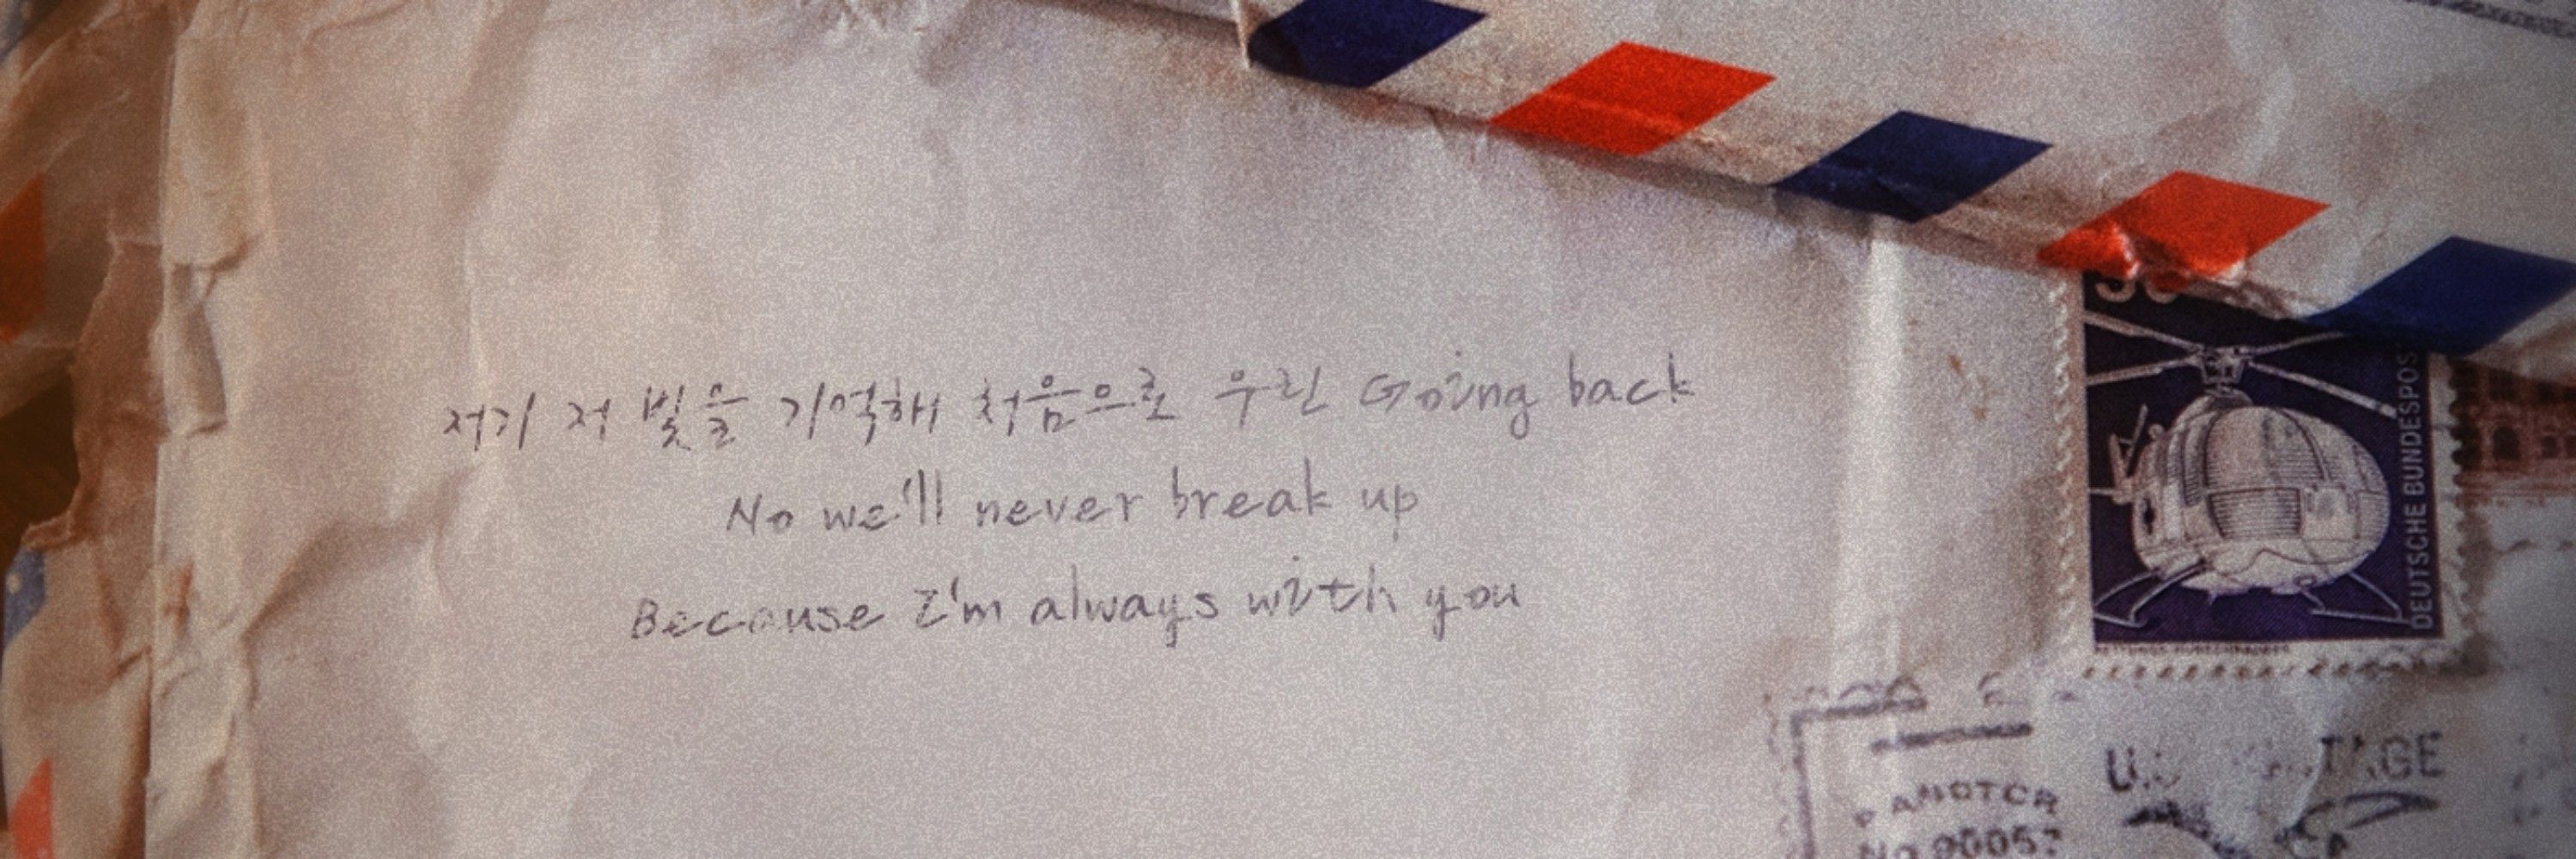 저기 저 빛을 기억해 처음으로 우린 Going back
No we'll never break up
Because I'm always with you
DEUTSCHE BUNDESPOST
U.S.
No.